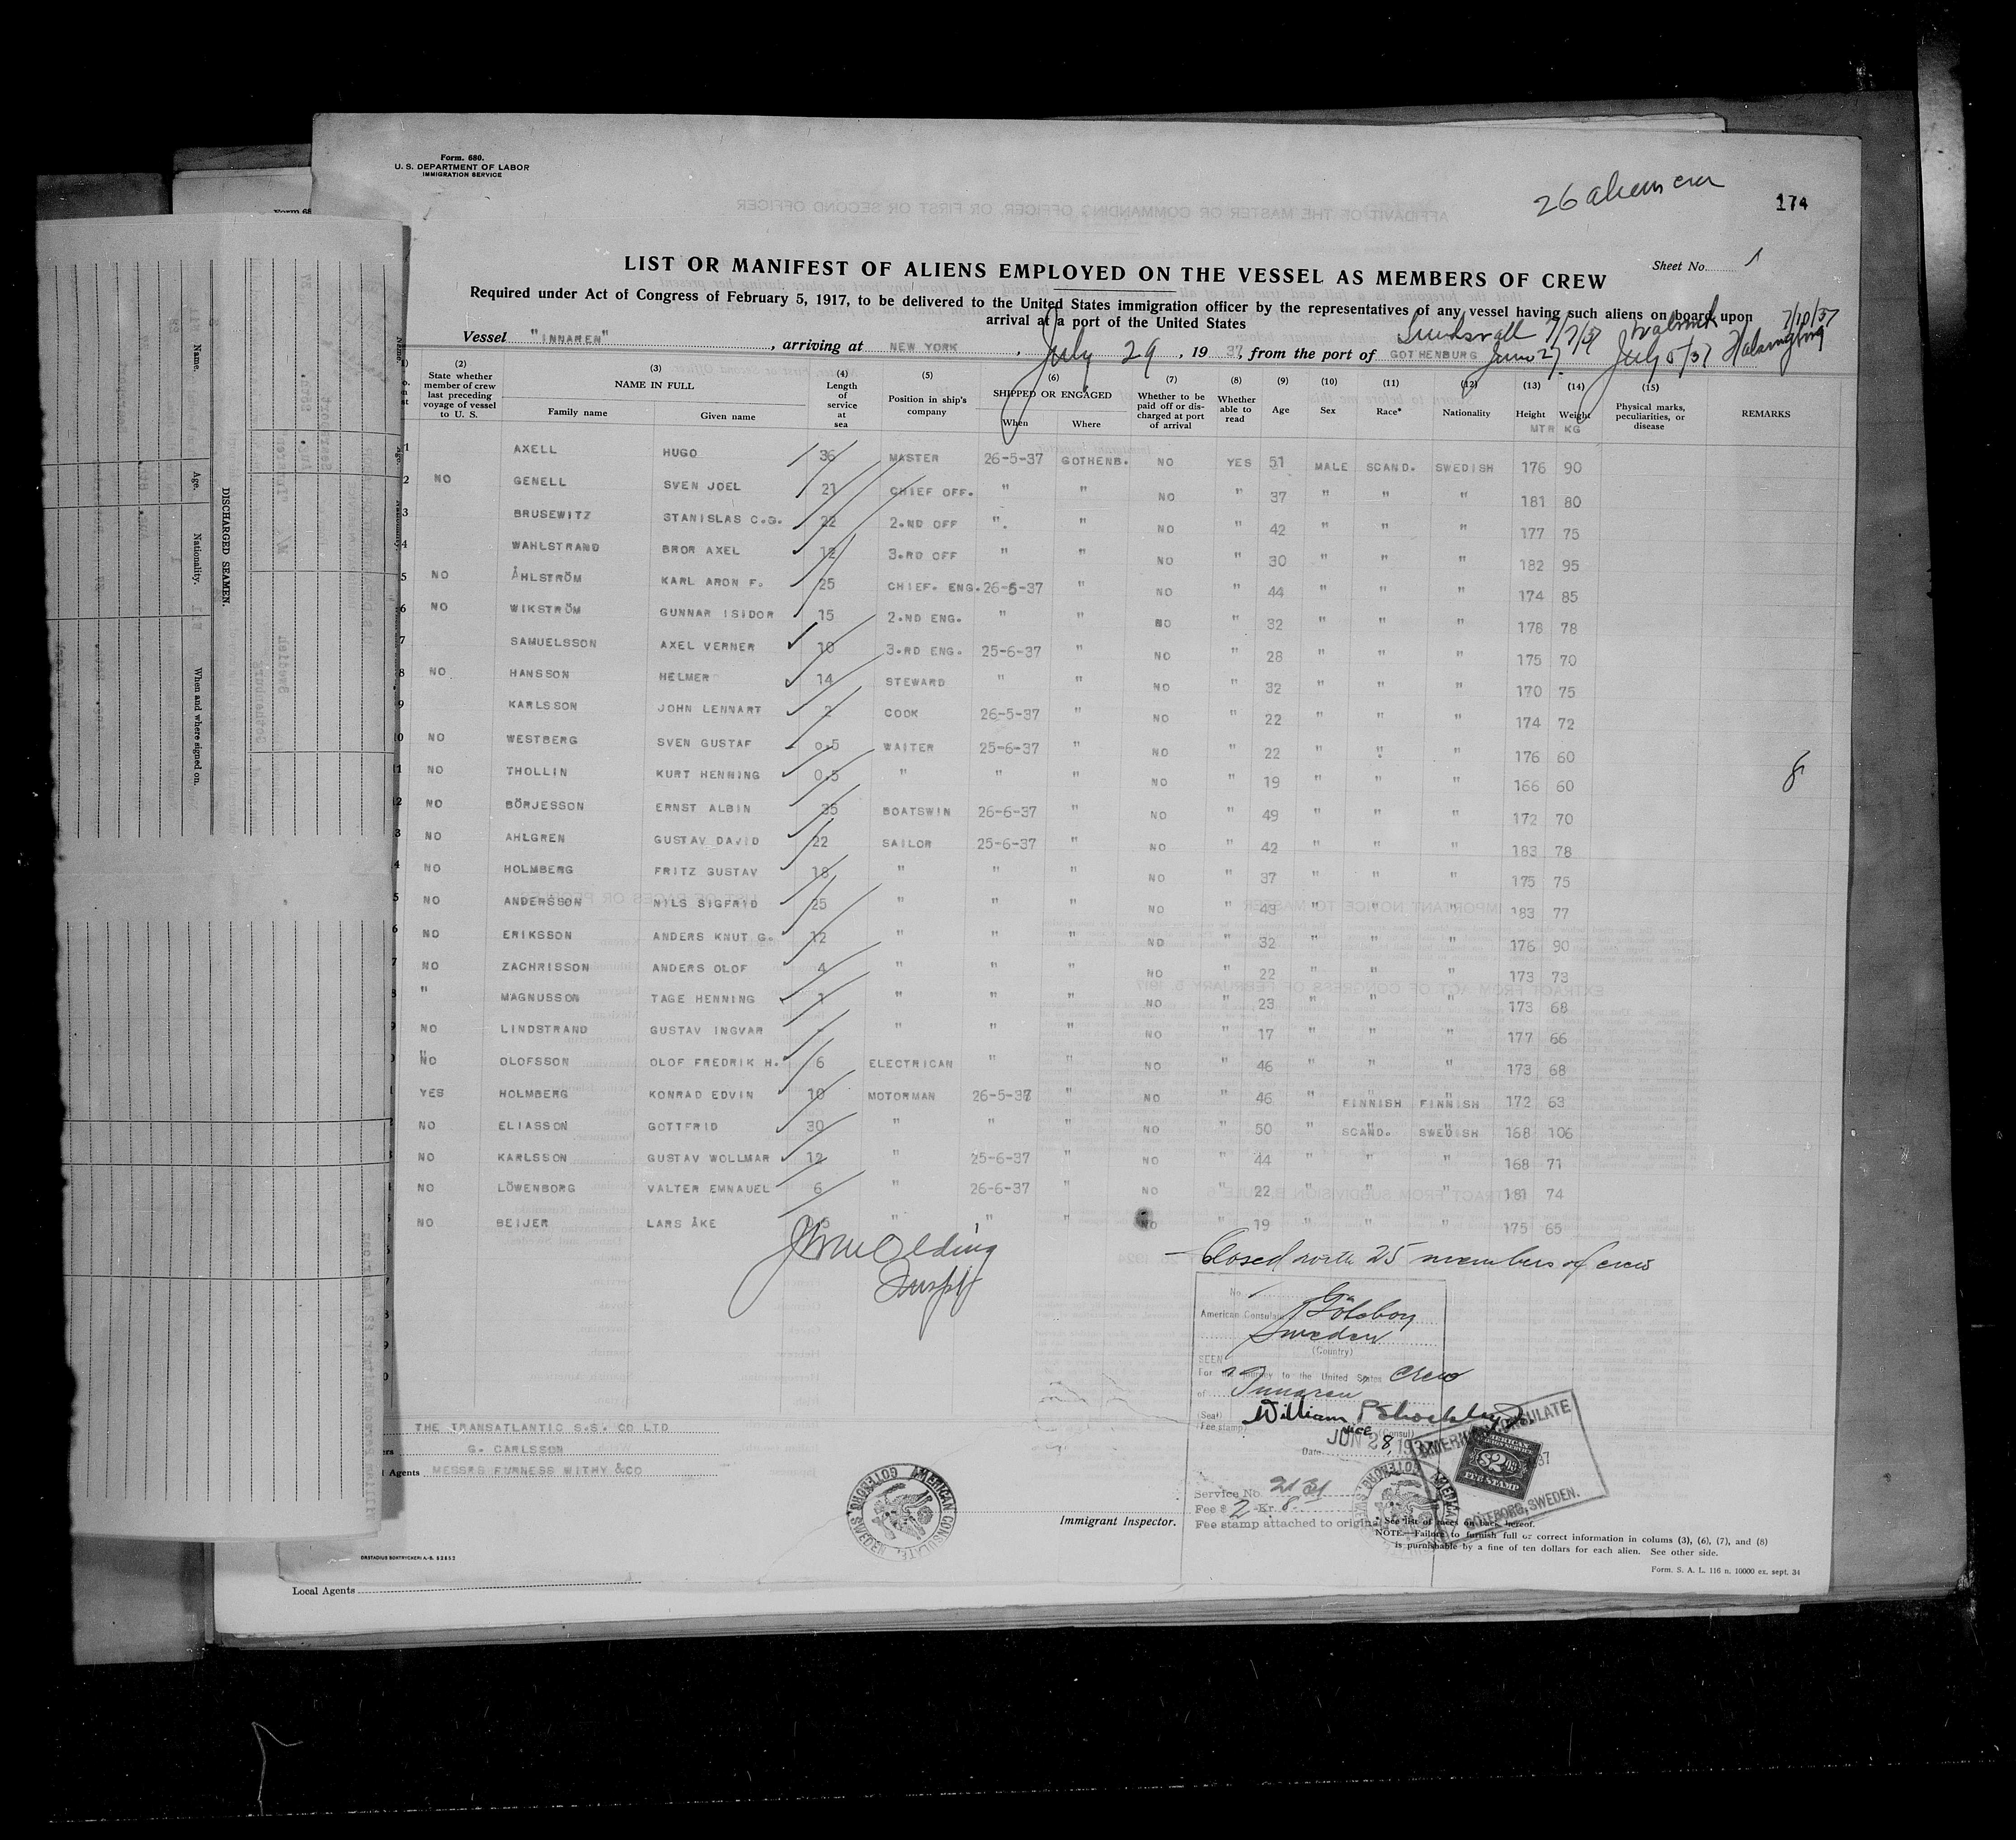 Form. 680.
U. S. DEPARTMENT OF LABOR
IMMIGRATION SERVICE
26 alien crew
174
LIST OR MANIFEST OF ALIENS EMPLOYED ON THE VESSEL AS MEMBERS OF CREW
Sheet No. 1
Required under Act of Congress of February 5, 1917, to be delivered to the United States immigration officer by the representatives of any vessel having such aliens on board upon
arrival at a port of the United States
Sundsvall 7/7/37 7/10/37
Vessel "INNAREN", arriving at NEW YORK, July 29, 1937, from the port of GOTHENBURG June 27. July 5/37
(2) State whether member of crew last preceding voyage of vessel to U. S.
(3) NAME IN FULL Family name Given name
(4) Length of service at sea
(5) Position in ship's company
(6) SHIPPED OR ENGAGED When Where
(7) Whether to be paid off or discharged at port of arrival
(8) Whether able to read
(9) Age
(10) Sex
(11) Race*
(12) Nationality
(13) Height MTR
(14) Weight KG
(15) Physical marks, peculiarities, or disease
REMARKS
1 AXELL HUGO 36 MASTER 26-5-37 GOTHENB. NO YES 51 MALE SCAND. SWEDISH 176 90
2 NO GENELL SVEN JOEL 21 CHIEF OFF. " " NO " 37 " " " 181 80
3 BRUSEWITZ STANISLAS C.G. 22 2.ND OFF " " NO " 42 " " " 177 75
4 WAHLSTRAND BROR AXEL 12 3.RD OFF " " NO " 30 " " " 182 95
5 NO ÅHLSTRÖM KARL ARON F. 25 CHIEF. ENG. 26-5-37 " NO " 44 " " " 174 85
6 NO WIKSTRÖM GUNNAR ISIDOR 15 2.ND ENG. " " NO " 32 " " " 178 78
7 SAMUELSSON AXEL VERNER 10 3.RD ENG. 25-6-37 " NO " 28 " " " 175 70
8 NO HANSSON HELMER 14 STEWARD " " NO " 32 " " " 170 75
9 KARLSSON JOHN LENNART 2 COOK 26-5-37 " NO " 22 " " " 174 72
10 NO WESTBERG SVEN GUSTAF 0.5 WAITER 25-6-37 " NO " 22 " " " 176 60
11 NO THOLLIN KURT HENNING 0,5 " " " NO " 19 " " " 166 60 8
2 NO BÖRJESSON ERNST ALBIN 35 BOATSWIN 26-6-37 " NO " 49 " " " 172 70
3 NO AHLGREN GUSTAV DAVID 22 SAILOR 25-6-37 " NO " 42 " " " 183 78
4 NO HOLMBERG FRITZ GUSTAV 18 " " " NO " 37 " " " 175 75
5 NO ANDERSSON NILS SIGFRID 25 " " " NO " 43 " " " 183 77
6 NO ERIKSSON ANDERS KNUT G. 12 " " " NO " 32 " " " 176 90
7 NO ZACHRISSON ANDERS OLOF 4 " " " NO " 22 " " " 173 73
8 " MAGNUSSON TAGE HENNING 1 " " " NO " 23 " " " 173 68
9 NO LINDSTRAND GUSTAV INGVAR - " " " NO " 17 " " " 177 66
NO OLOFSSON OLOF FREDRIK H. 6 ELECTRICAN " " NO " 46 " " " 173 68
YES HOLMBERG KONRAD EDVIN 10 MOTORMAN 26-5-37 " NO " 46 " FINNISH FINNISH 172 63
NO ELIASSON GOTTFRID 30 " " " NO " 50 " SCAND. SWEDISH 168 106
NO KARLSSON GUSTAV WOLLMAR 12 " 25-6-37 " NO " 44 " " " 168 71
NO LÖWENBORG VALTER EMNAUEL 6 " 26-6-37 " NO " 22 " " " 181 74
NO BEIJER LARS ÅKE " " " NO " 19 " " " 175 65
Closed with 25 members of crew
No.
American Consulate Göteborg
Sweden
(Country)
SEEN
For the journey to the United States Crew
of Innaren
William P Shockley
(Seal)
Fee stamp)
Vice (Consul)
Date JUN 28, 1937
AMERICAN CONSULATE
GÖTEBORG, SWEDEN.
AMERICAN
$2.00
FEE STAMP
Service No. 2131
Fee $ 2 Kr. 8
Fee stamp attached to original
THE TRANSATLANTIC S.S. CO LTD
G. CARLSSON
Agents MESSRS FURNESS WITHY & CO
AMERICAN CONSULATE, GÖTEBORG SWEDEN
Immigrant Inspector.
* See list of races on back hereof.
NOTE—Failure to furnish full or correct information in colums (3), (6), (7), and (8)
is punishable by a fine of ten dollars for each alien. See other side.
Form. S. A. L. 116 n. 10000 ex. sept. 34
Local Agents
DISCHARGED SEAMEN.
Name. Age. Nationality. When and where signed on.